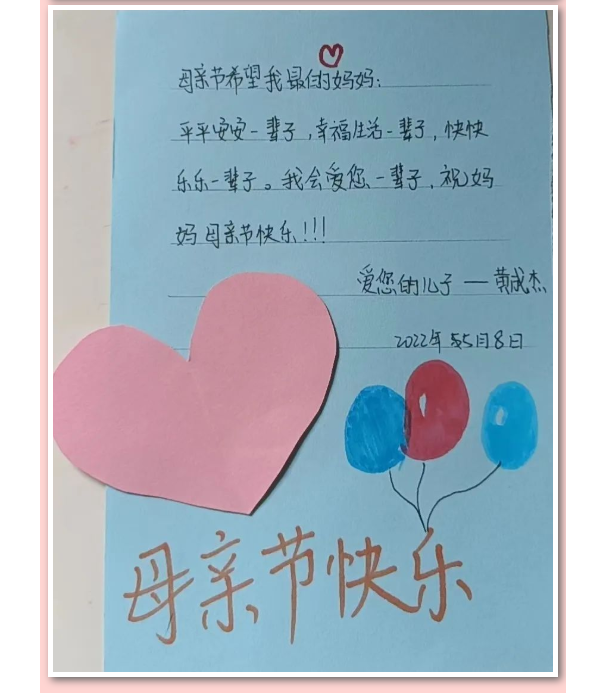 母亲节希望我最佳的妈妈：
平平安安一辈子，幸福生活一辈子，快快
乐乐一辈子。我会爱您一辈子，祝妈
妈母亲节快乐！！！
爱您的儿子 — 黄成杰
2022年5月8日
母亲节快乐